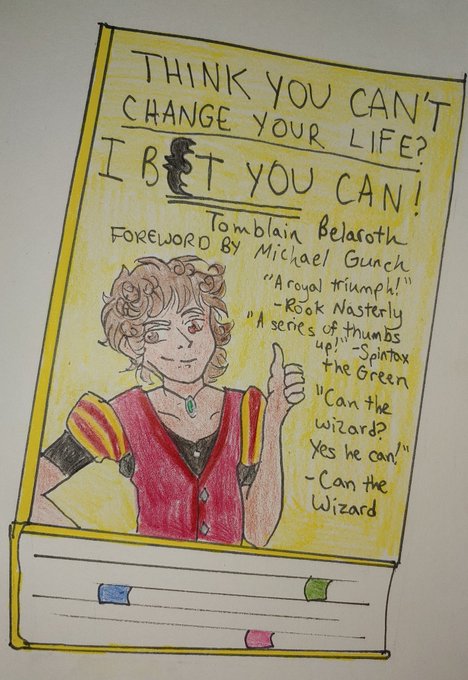 THINK YOU CAN'T
CHANGE YOUR LIFE?
I BET YOU CAN!
Tomblain Belaroth
FOREWORD BY Michael Gunch
"A royal triumph!"
-Rook Nasterly
"A series of thumbs
up!" -Spintax
the Green
"Can the
wizard?
Yes he can!"
-Can the
Wizard